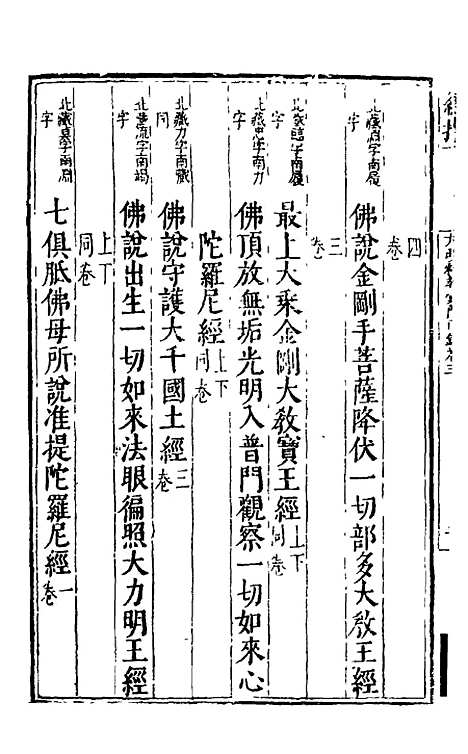 四卷
北藏淵字南履字
佛說金剛手菩薩降伏一切部多大教王經
三卷
北藏臨字南履字
最上大乘金剛大教寶王經上下同卷
北藏忠字南力字
佛頂放無垢光明入普門觀察一切如來心
陀羅尼經上下同卷
北藏力字南藏同
佛說守護大千國土經三卷
北藏流字南竭字
佛說出生一切如來法眼徧照大力明王經
上下同卷
字南淵字
七俱胝佛母所說准提陀羅尼經一卷